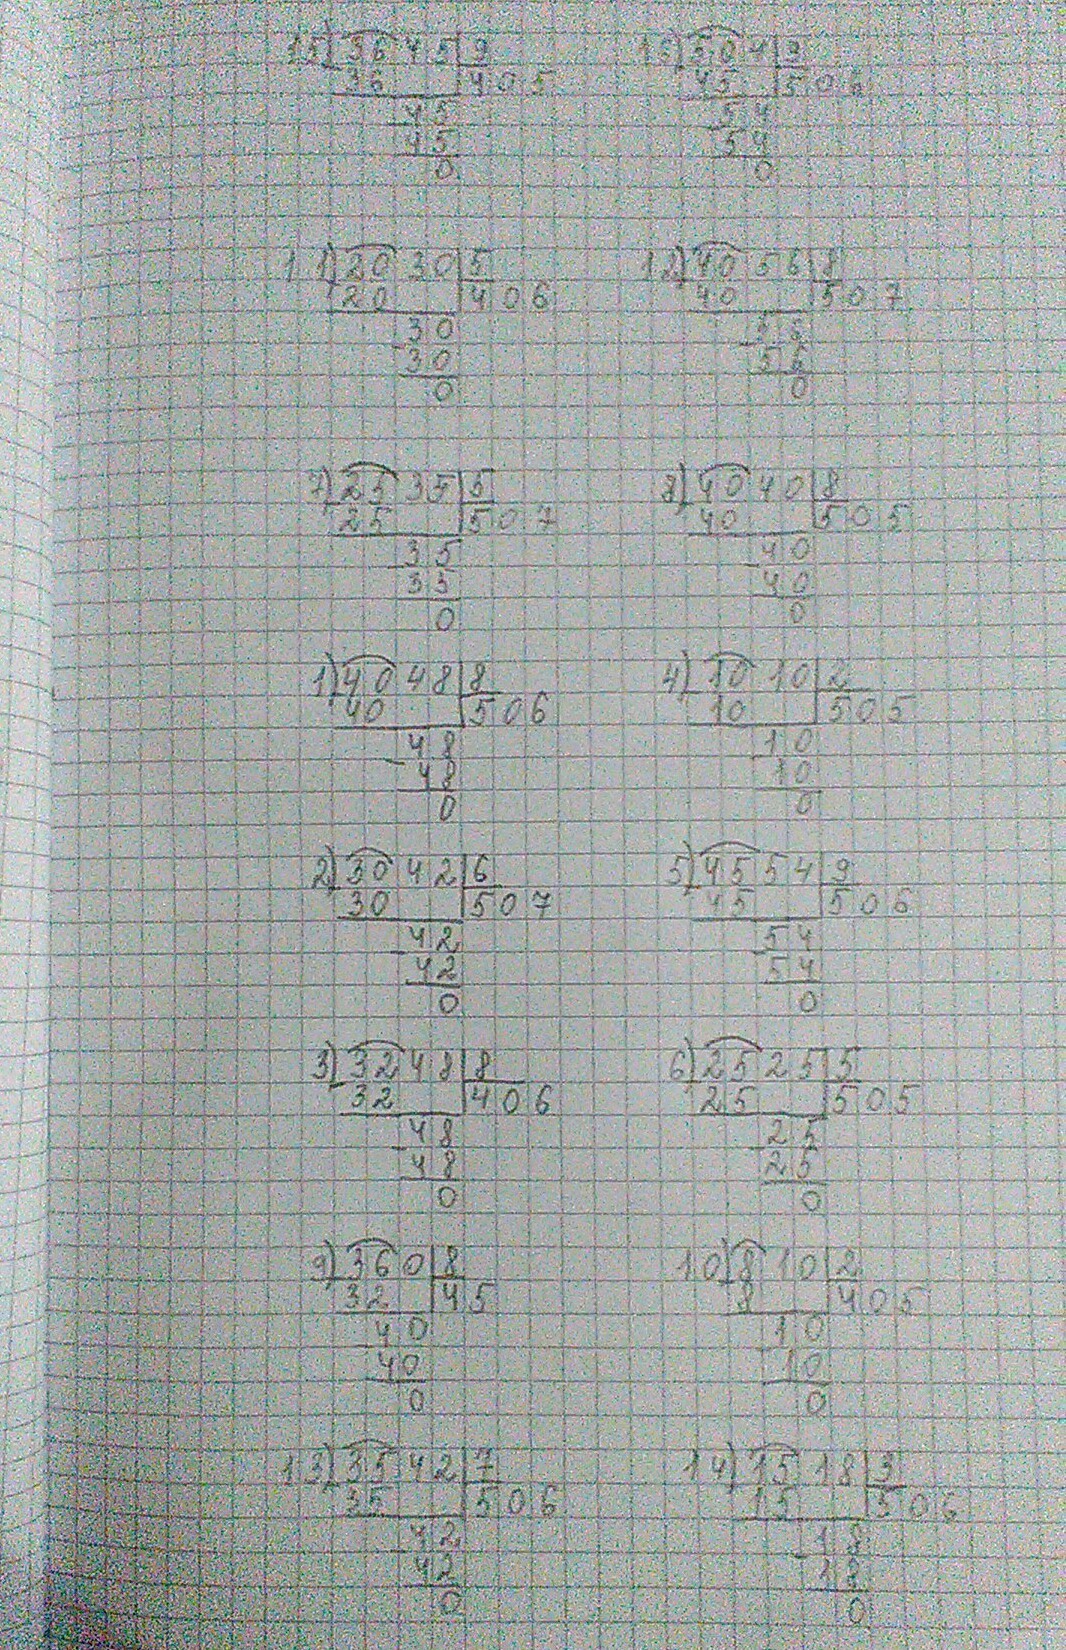 15) 3645 9
36 405
45
45
0
504 9
45 506
54
54
0
11) 2030 5
20 406
30
30
0
12) 4056 8
40 507
56
56
0
7) 2535 5
25 507
35
35
0
8) 4040 8
40 505
40
40
0
1) 4048 8
40 506
48
48
0
4) 1010 2
10 505
10
10
0
2) 3042 6
30 507
42
42
0
5) 4554 9
45 506
54
54
0
3) 3248 8
32 406
48
48
0
6) 2525 5
25 505
25
25
0
9) 360 8
32 45
40
40
0
10) 810 2
8 405
10
10
0
13) 3542 7
35 506
42
42
0
14) 1518 3
15 506
18
18
0